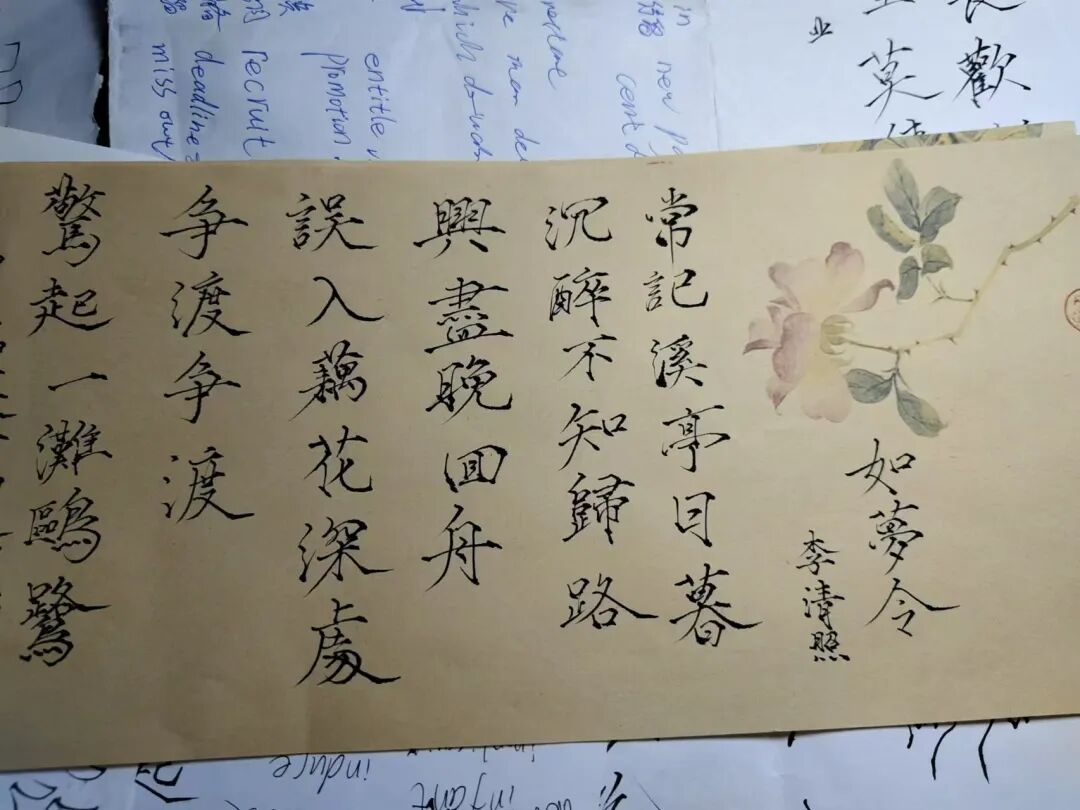 如夢令
李清照
常記溪亭日暮
沉醉不知歸路
興盡晚囬舟
誤入藕花深處
争渡争渡
驚起一灘鷗鷺
歡
莫
业
in
new
cent
which
entitle
promotion
recruit
deadline
miss out
induce
infant